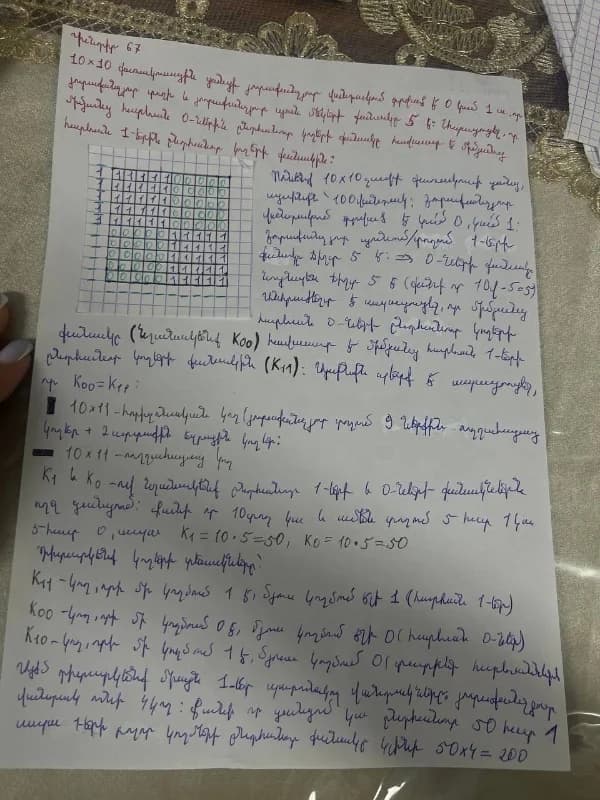 Խնդիր 67
10×10 վանդակավոր ցանցի յուրաքանչյուր վանդակում գրված է 0 կամ 1 այ. որ
յուրաքանչյուր տողի և յուրաքանչյուր սյան մեկերի քանակը 5 է: Ապացուցել, որ
միմյանց հարևան 0-ների ընդհանուր կողերի քանակը հավասար է միմյանց
հարևան 1-երի ընդհանուր կողերի քանակին:
Ունենք 10×10 չափի քառակուսի ցանց,
այսինքն՝ 100 վանդակ: Յուրաքանչյուր
վանդակում գրված է կամ 0, կամ 1:
Յուրաքանչյուր սյունում/տողում 1-երի
քանակը ճիշտ 5 է: => 0-ների քանակը
նույնպես ճիշտ 5 է (քանի որ 10-5=5)
Անհրաժեշտ է ապացուցել, որ միմյանց
հարևան 0-ների ընդհանուր կողերի
քանակը (նշանակենք K00) հավասար է միմյանց հարևան 1-երի
ընդհանուր կողերի քանակին (K11): Այսինքն պետք է ապացուցել,
որ K00=K11:
10×11-հորիզոնական կող (յուրաքանչյուր տողում 9 ներքին ուղղահայաց
կողեր + 2 արտաքին եզրային կողեր:
10×11-ուղղահայաց կող
K1 և K0-ով նշանակենք ընդհանուր 1-երի և 0-ների քանակները
ողջ ցանցում: Քանի որ 10 տող կա և ամեն տողում 5 հատ 1 կա
5 հատ 0, ապա K1=10·5=50, K0=10·5=50
Դիտարկենք կողերի տեսակները՝
K11-կող, որի մի կողմում 1 է, մյուս կողմում էլի 1 (հարևան 1-եր)
K00-կող, որի մի կողմում 0 է, մյուս կողմում էլի 0 (հարևան 0-ներ)
K10-կող, որի մի կողմում 1 է, մյուս կողմում 0 (տարբեր հարևաններ)
Այժմ դիտարկենք միայն 1-եր պարունակող վանդակները: յուրաքանչյուր
վանդակ ունի 4 կող: Քանի որ ցանցում կա ընդհանուր 50 հատ 1
ապա 1-երի բոլոր կողմերի ընդհանուր քանակը կլինի 50×4=200